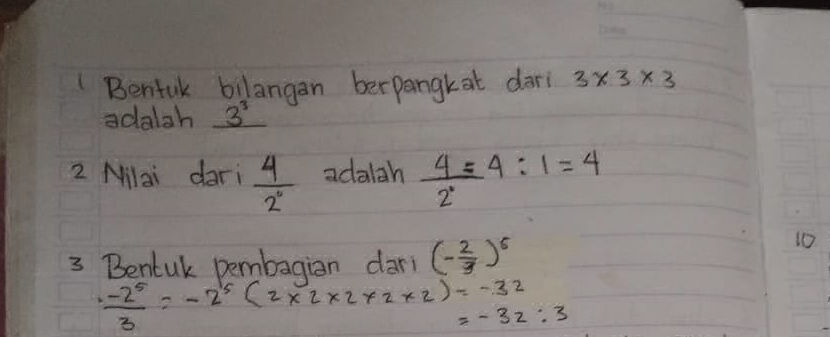 1 Bentuk bilangan berpangkat dari 3 × 3 × 3
adalah 3³
2 Nilai dari 4/2⁰ adalah 4/2⁰ = 4 : 1 = 4
3 Bentuk pembagian dari (-2/3)⁵
-2⁵/3 = -2⁵ (2 × 2 × 2 × 2 × 2) = -32
= -32 : 3
10